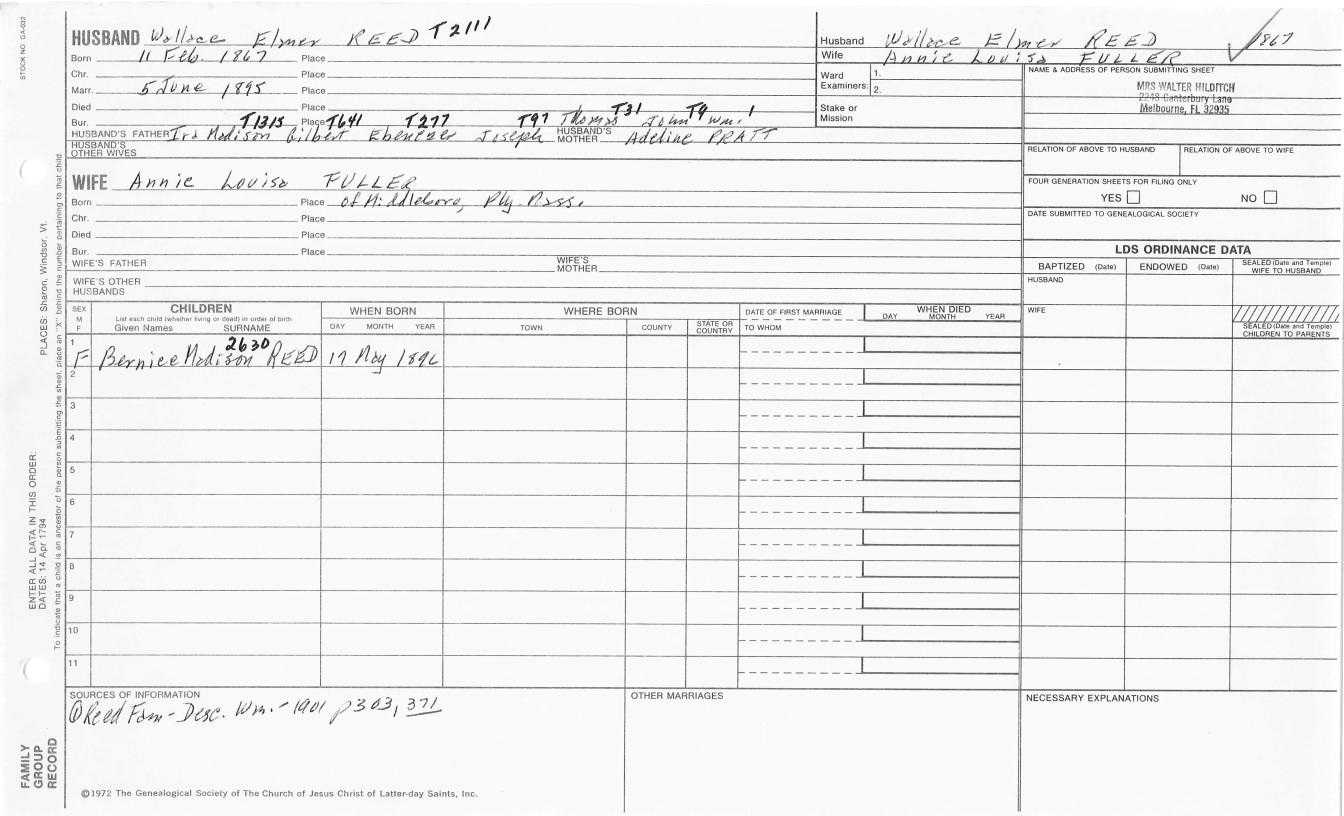 STOCK NO. GA-032
HUSBAND Wallace Elmer REED T2111
Born 11 Feb. 1867 Place
Chr. Place
Marr. 5 June 1895 Place
Died Place
Bur. Place
T1315 T641 T277 T97 T31 T9 1
HUSBAND'S FATHER Ira Madison Gilbert Ebenezer Joseph Thomas John Wm. HUSBAND'S MOTHER Adeline PRATT
HUSBAND'S OTHER WIVES
WIFE Annie Louisa FULLER
Born Place of Middleboro, Ply. Mass.
Chr. Place
Died Place
Bur. Place
WIFE'S FATHER WIFE'S MOTHER
WIFE'S OTHER HUSBANDS
Husband Wallace Elmer REED 1867
Wife Annie Louisa FULLER
Ward Examiners: 1.
2.
Stake or Mission
NAME & ADDRESS OF PERSON SUBMITTING SHEET
MRS WALTER HILDITCH
2248 Canterbury Lane
Melbourne, FL 32935
RELATION OF ABOVE TO HUSBAND RELATION OF ABOVE TO WIFE
FOUR GENERATION SHEETS FOR FILING ONLY
YES NO
DATE SUBMITTED TO GENEALOGICAL SOCIETY
LDS ORDINANCE DATA
BAPTIZED (Date) ENDOWED (Date) SEALED (Date and Temple) WIFE TO HUSBAND
HUSBAND
WIFE
SEALED (Date and Temple) CHILDREN TO PARENTS
SEX M F
CHILDREN
List each child (whether living or dead) in order of birth
Given Names SURNAME
WHEN BORN
DAY MONTH YEAR
WHERE BORN
TOWN COUNTY STATE OR COUNTRY
DATE OF FIRST MARRIAGE
TO WHOM
WHEN DIED
DAY MONTH YEAR
2630
1 F Bernice Madison REED 17 May 1896
2
3
4
5
6
7
8
9
10
11
SOURCES OF INFORMATION
① Reed Fam - Desc. Wm. - 1901 p 303, 371
OTHER MARRIAGES
NECESSARY EXPLANATIONS
©1972 The Genealogical Society of The Church of Jesus Christ of Latter-day Saints, Inc.
FAMILY GROUP RECORD
ENTER ALL DATA IN THIS ORDER:
DATES: 14 Apr 1794 PLACES: Sharon, Windsor, Vt.
To indicate that a child is an ancestor of the person submitting the sheet, place an "X" behind the number pertaining to that child